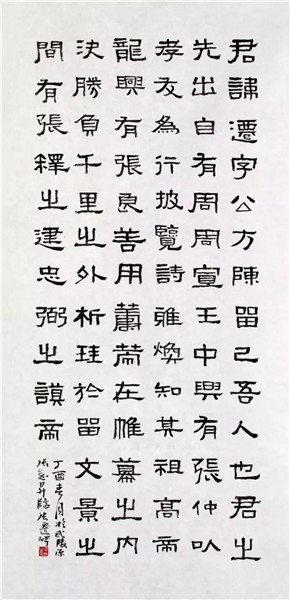 君諱遷字公方陳留己吾人也君之
先出自有周周宣王中興有張仲以
孝友為行披覽詩雅煥知其祖高帝
龍興有張良善用籌策在帷幕之內
決勝負千里之外析珪於留文景之
間有張釋之建忠弼之謨帝
丁酉春月於武陵源
臨張遷碑